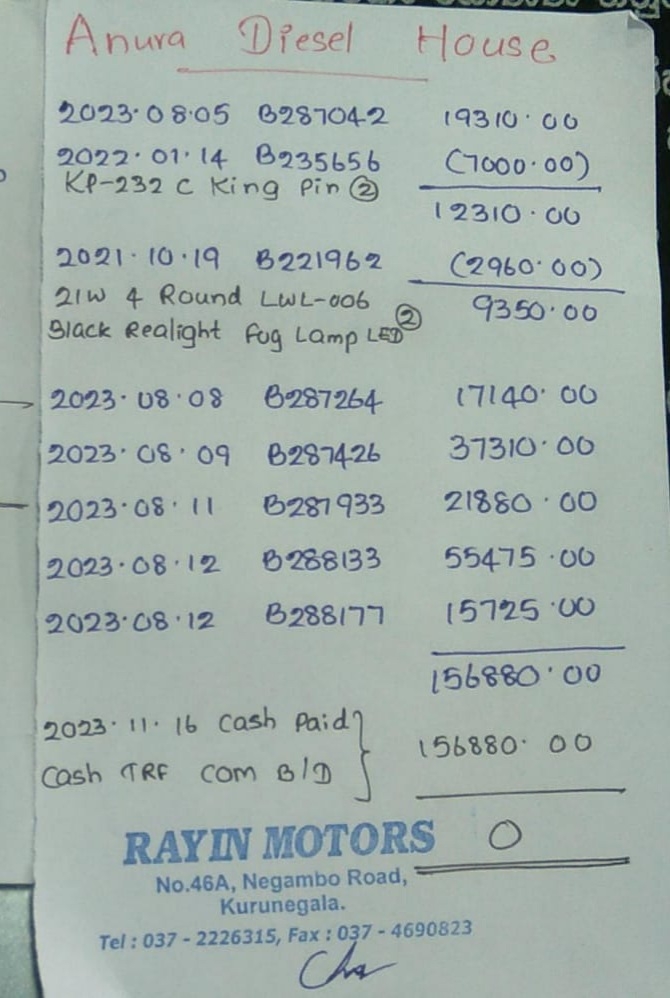 Anura Diesel House
2023.08.05 B287042 19310.00
2022.01.14 B235656 (7000.00)
KP-232 C King Pin ②
12310.00
2021.10.19 B221962 (2960.00)
21W 4 Round LWL-006
9350.00
Black Realight Fog Lamp LED ②
2023.08.08 B287264 17140.00
2023.08.09 B287426 37310.00
2023.08.11 B287933 21880.00
2023.08.12 B288133 55475.00
2023.08.12 B288177 15725.00
156880.00
2023.11.16 Cash Paid
156880.00
Cash TRF COM B/D
0
RAYIN MOTORS
No.46A, Negambo Road,
Kurunegala.
Tel : 037 - 2226315, Fax : 037 - 4690823